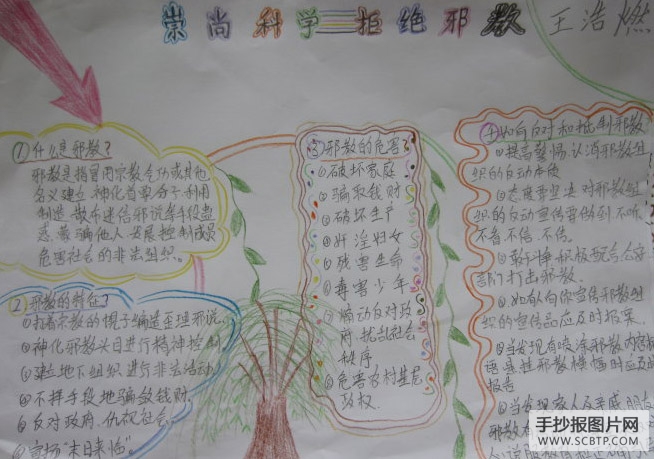 崇尚科学 拒绝邪教
王浩燃
①什么是邪教?
邪教是指冒用宗教、气功或其他
名义建立,神化首要分子,利用
制造、散布迷信邪说等手段蛊
惑、蒙骗他人,发展、控制成员,
危害社会的非法组织。
②邪教的特色?
①打着宗教的幌子编造歪理邪说.
②神化邪教头目进行精神控制
③建立地下组织进行非法活动
④不择手段地骗敛钱财.
⑤反对政府,仇视社会.
⑥宣扬“末日来临”.
③邪教的危害?
①破坏家庭
②骗取钱财
③破坏生产
④奸淫妇女
⑤残害生命
⑥毒害少年
⑦煽动反对政
府,扰乱社会
秩序
⑧危害农村基层
政权.
④如何反对和抵制邪教
①提高警惕认清邪教组
织的反动本质
②态度 坚决对邪教组
织的反动宣传要做到不听、
不看、不信、不传。
③ 积极配合公安
部门打击邪教.
④如有人向你宣传邪教组
织的宣传品应及时报案.
⑤当发现有喷涂邪教内容标
语悬挂邪教横幅时应及时
报告
⑥当发现家人及亲戚朋友
邪教
手抄报图片网
WWW.SCBTP.COM